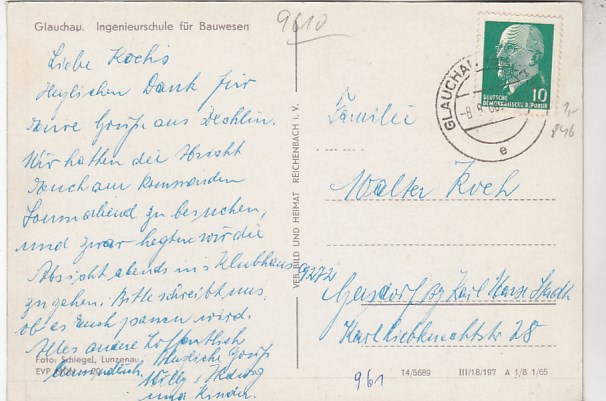 Glauchau. Ingenieurschule für Bauwesen
9610
Liebe Kochs
Herzlichen Dank für
Eure Grüße aus Dechlin.
Wir hatten die Absicht
Euch am kommenden
Sonnabend zu besuchen,
und zwar hegten wir die
Absicht abends ins Klubhaus
zu gehen. Bitte schreibt uns,
ob es Euch passen wird.
Alles andere hoffentlich
mündlich. Herzliche Grüße
Willy, Hedwig
und Kinder.
Foto: Schlegel, Lunzenau
EVP
VEB BILD UND HEIMAT REICHENBACH I. V.
GLAUCHAU
-8.
e
10
DEUTSCHE
DEMOKRATISCHE REPUBLIK
1,-
846
Familie
Walter Koch
9272
Gersdorf bz Karl-Marx-Stadt
Karl Liebknechtstr 28
961
14/5689 III/18/197 A 1/B 1/65